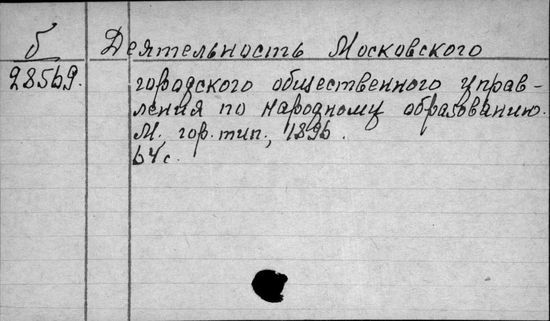 б
28569.
Деятельность Московского
городского общественного управ-
ления по народному образованию.
М. гор. тип., 1896.
64 с.